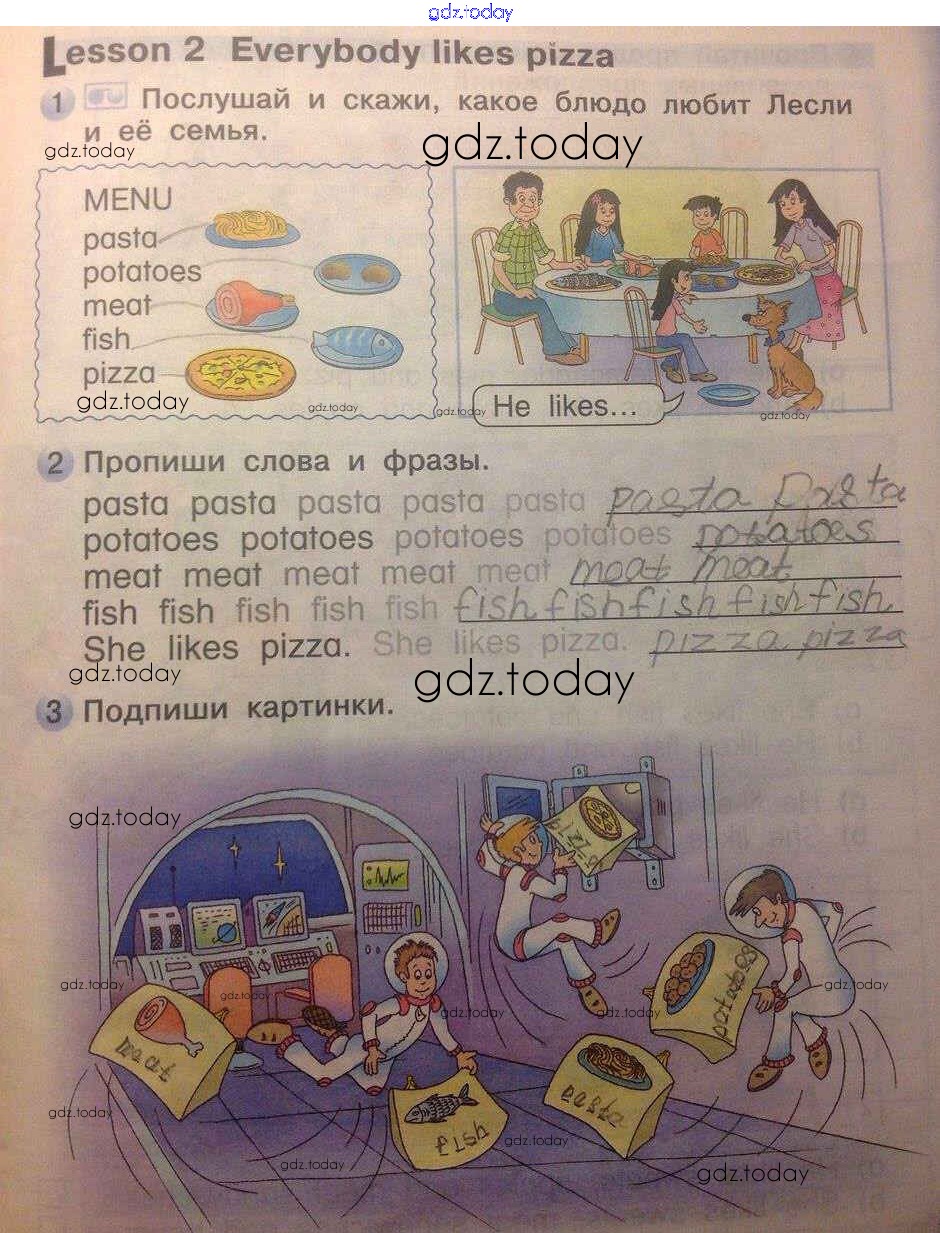 gdz.today
Lesson 2 Everybody likes pizza
1 Послушай и скажи, какое блюдо любит Лесли
и её семья.
gdz.today
gdz.today
MENU
pasta
potatoes
meat
fish
pizza
gdz.today
gdz.today
gdz.today
He likes...
gdz.today
2 Пропиши слова и фразы.
pasta pasta pasta pasta pasta pasta pasta
potatoes potatoes potatoes potatoes potatoes
meat meat meat meat meat meat meat
fish fish fish fish fish fish fish fish fish fish
She likes pizza. She likes pizza. pizza pizza
gdz.today
gdz.today
3 Подпиши картинки.
gdz.today
pizza
gdz.today
gdz.today
gdz.today
gdz.today
gdz.today
potatoes
meat
fish
pasta
gdz.today
gdz.today
gdz.today
gdz.today